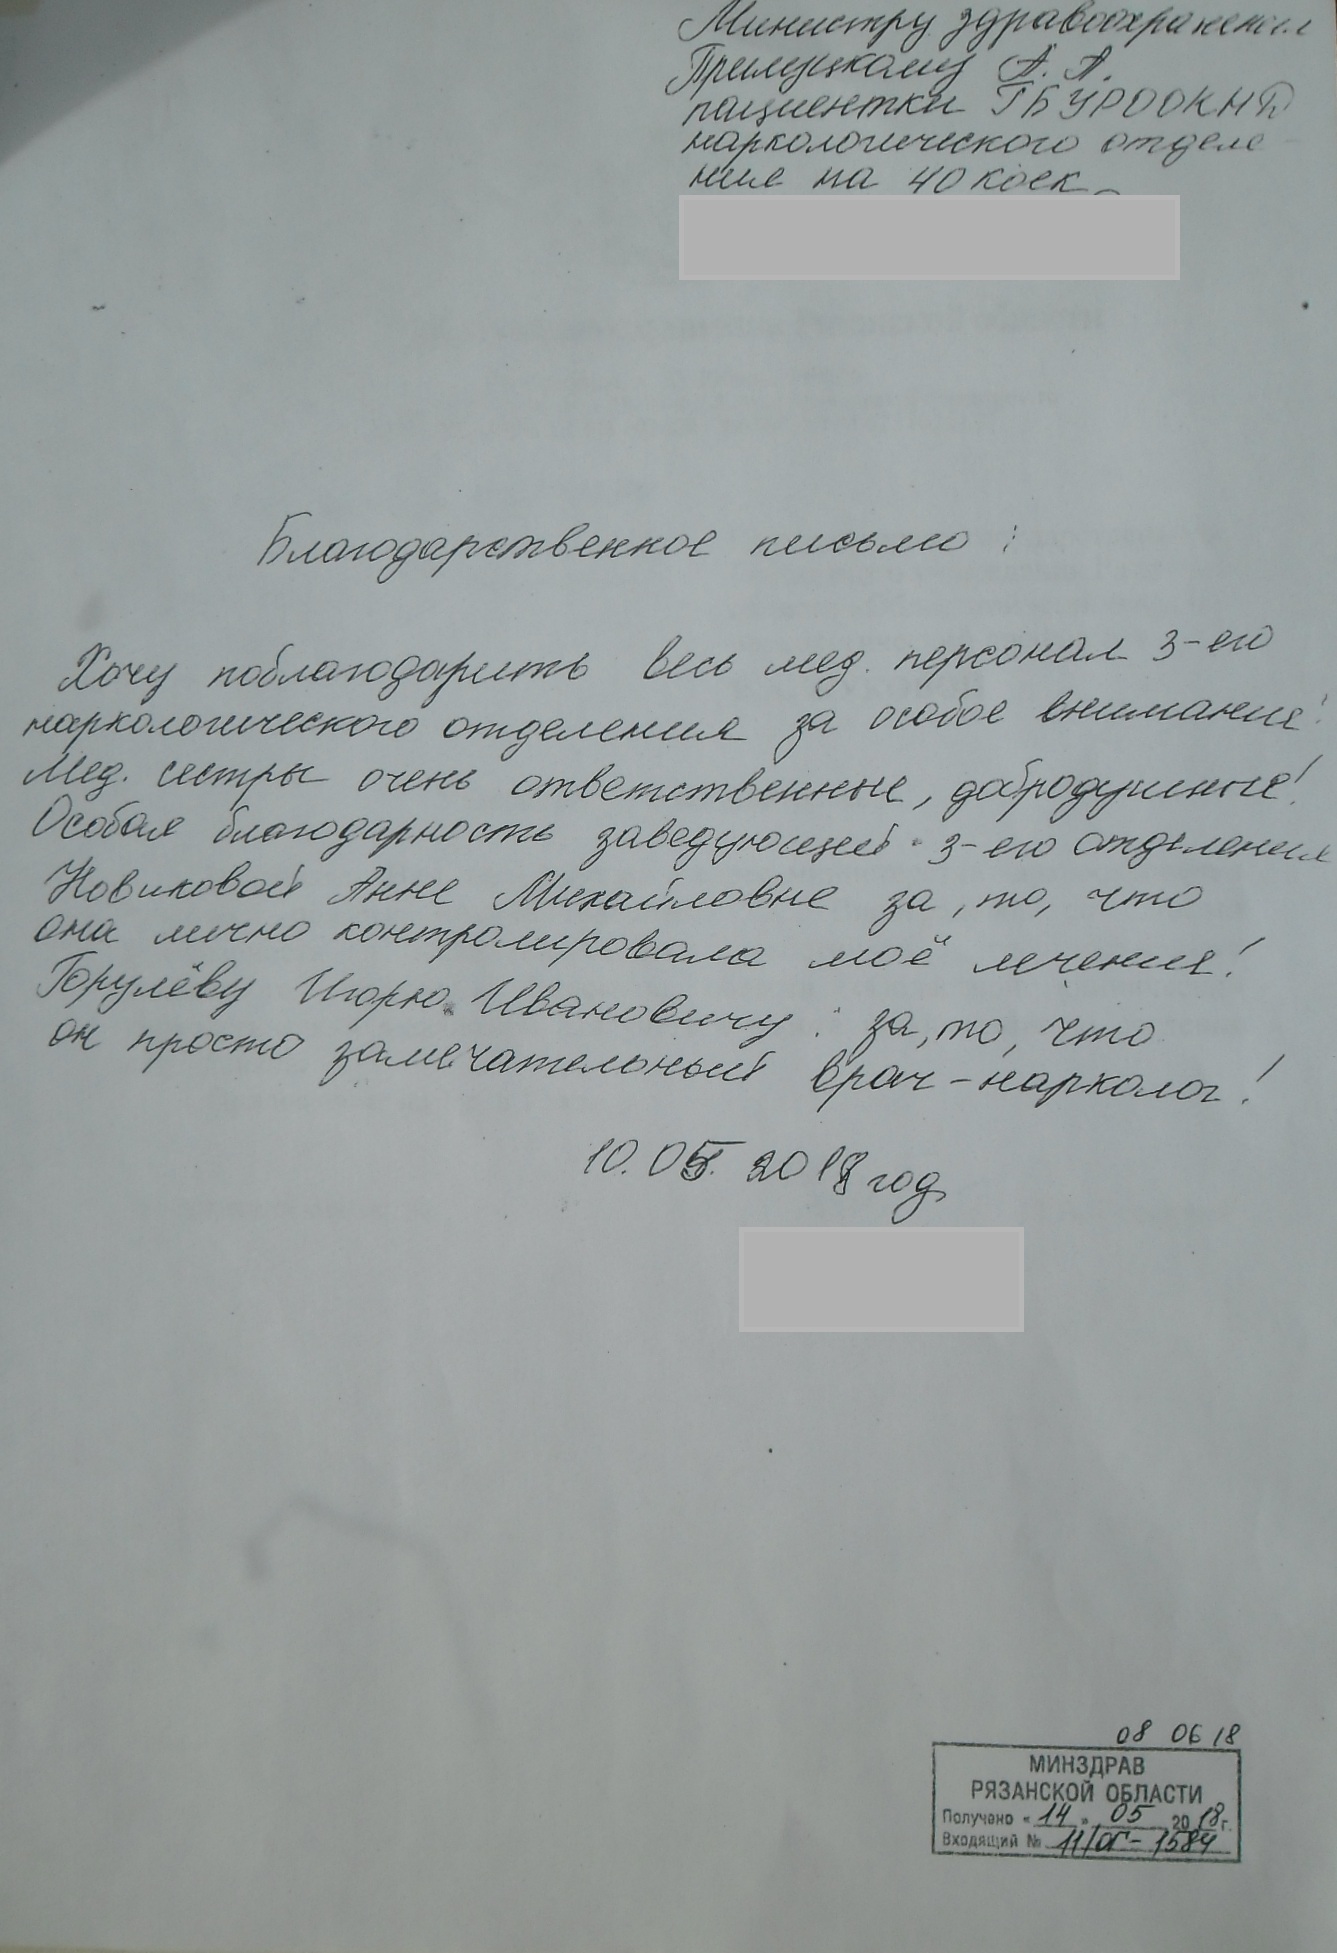 Министру здравоохранения
Прилуцкому А. А.
пациентки ГБУ РО ОКНД
наркологического отделе-
ния на 40 коек
Благодарственное письмо:
Хочу поблагодарить весь мед. персонал 3-его
наркологического отделения за особое внимание!
Мед. сестры очень ответственные, добродушные!
Особая благодарность заведующей 3-его отделения
Новиковой Анне Михайловне за, то, что
она лично контролировала моё лечение!
Горулёву Игорю Ивановичу: за, то, что
он просто замечательный врач-нарколог!
10.05. 2018 год
08 06 18
МИНЗДРАВ
РЯЗАНСКОЙ ОБЛАСТИ
Получено «14» 05 2018г.
Входящий № 11/ОГ-1584